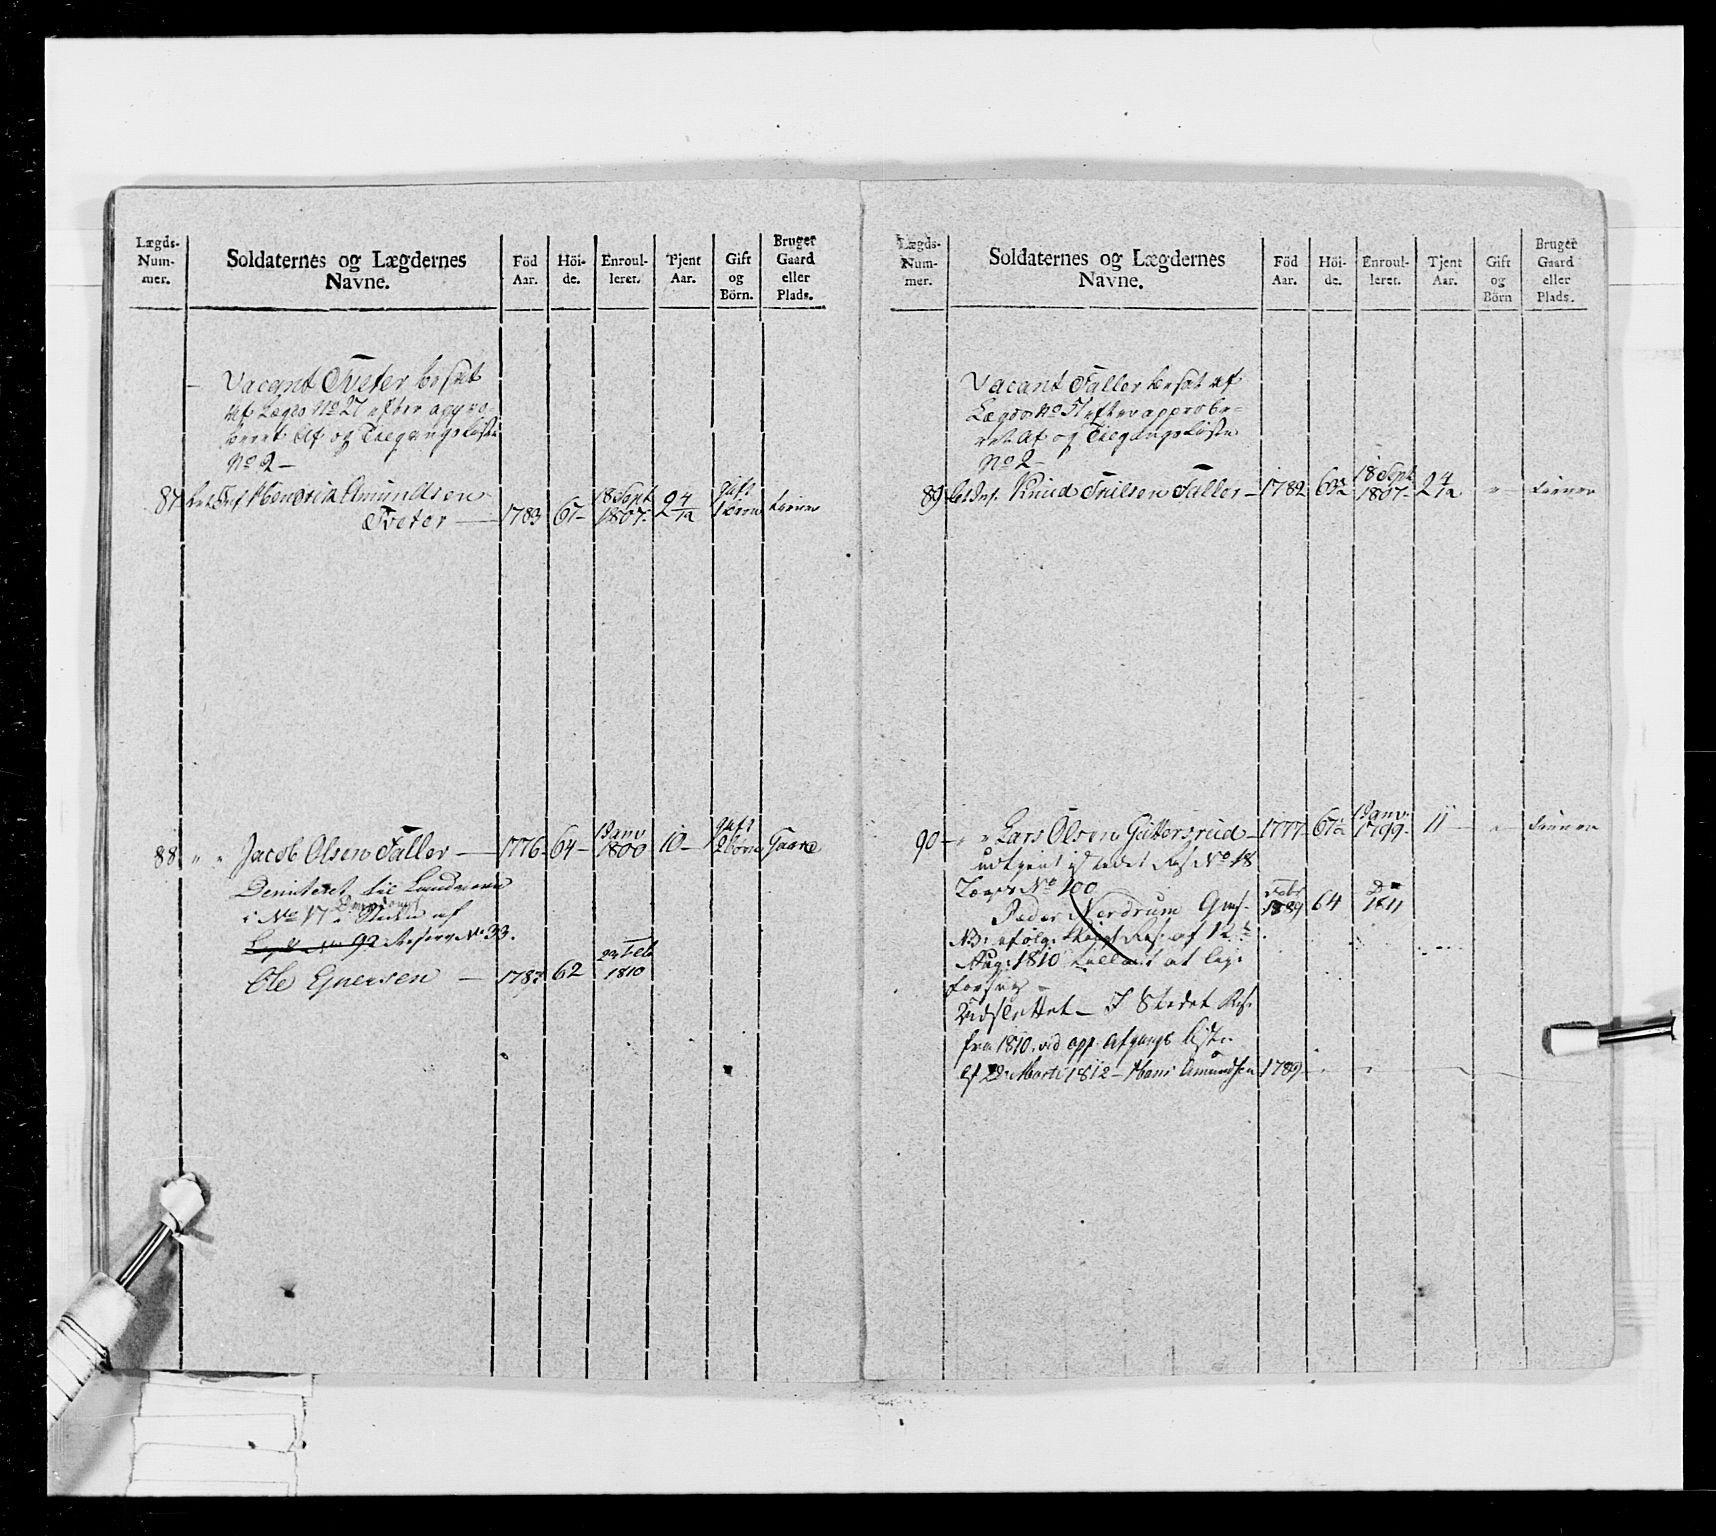 Lægds-
Num-
mer.
Soldaternes og Lægdernes
Navne.
Föd
Aar.
Höi-
de.
Enroul-
leret.
Tjent
Aar.
Gift
og
Börn.
Bruger
Gaard
eller
Plads.
Vacant Tveter besat
af Lægds No 27 efter appro-
beret Af og Tilgangsliste
No 2 —
87 Hendrich Amundsen
Tveter — 1783 67 — 18 Sept 1807 2 4/12 gift 1 barn tiener
88 " " Jacob Olsen Faller — 1776 64 — 1 Janv 1800 10 — gift 2 börn Gaard
Demiteret til Landværn
i No 17 i Steden af
Lægd No 92 Reserv No 33.
Ole Ejnersen — 1787 62 23 Feb 1810
Lægds-
Num-
mer.
Soldaternes og Lægdernes
Navne.
Föd
Aar.
Höi-
de.
Enroul-
leret.
Tjent
Aar.
Gift
og
Börn
Bruger
Gaard
eller
Plads.
Vacant Faller besat af
Lægds No 51 efter approbe-
ret Af og Tilgangsliste
No 2 —
89 Knud Troilsen Faller — 1782 63 1/2 18 Sept 1807 2 4/12 " tiener
90 — " " Lars Olsen Guttersrud — 1777 67 1/2 1 Janv 1799 11 — " tiener
udtient istædet Res No 18
Lægd No 100
Peder Nordrum Febr 1789 64 Do 1811
NB: ifölge Res: af 12te
Aug: 1810 at
Udslettet — I Stedet Res.
fra 1810. ved app. Afgangs liste
af Marti 1812 — Hans Amundsen 1789